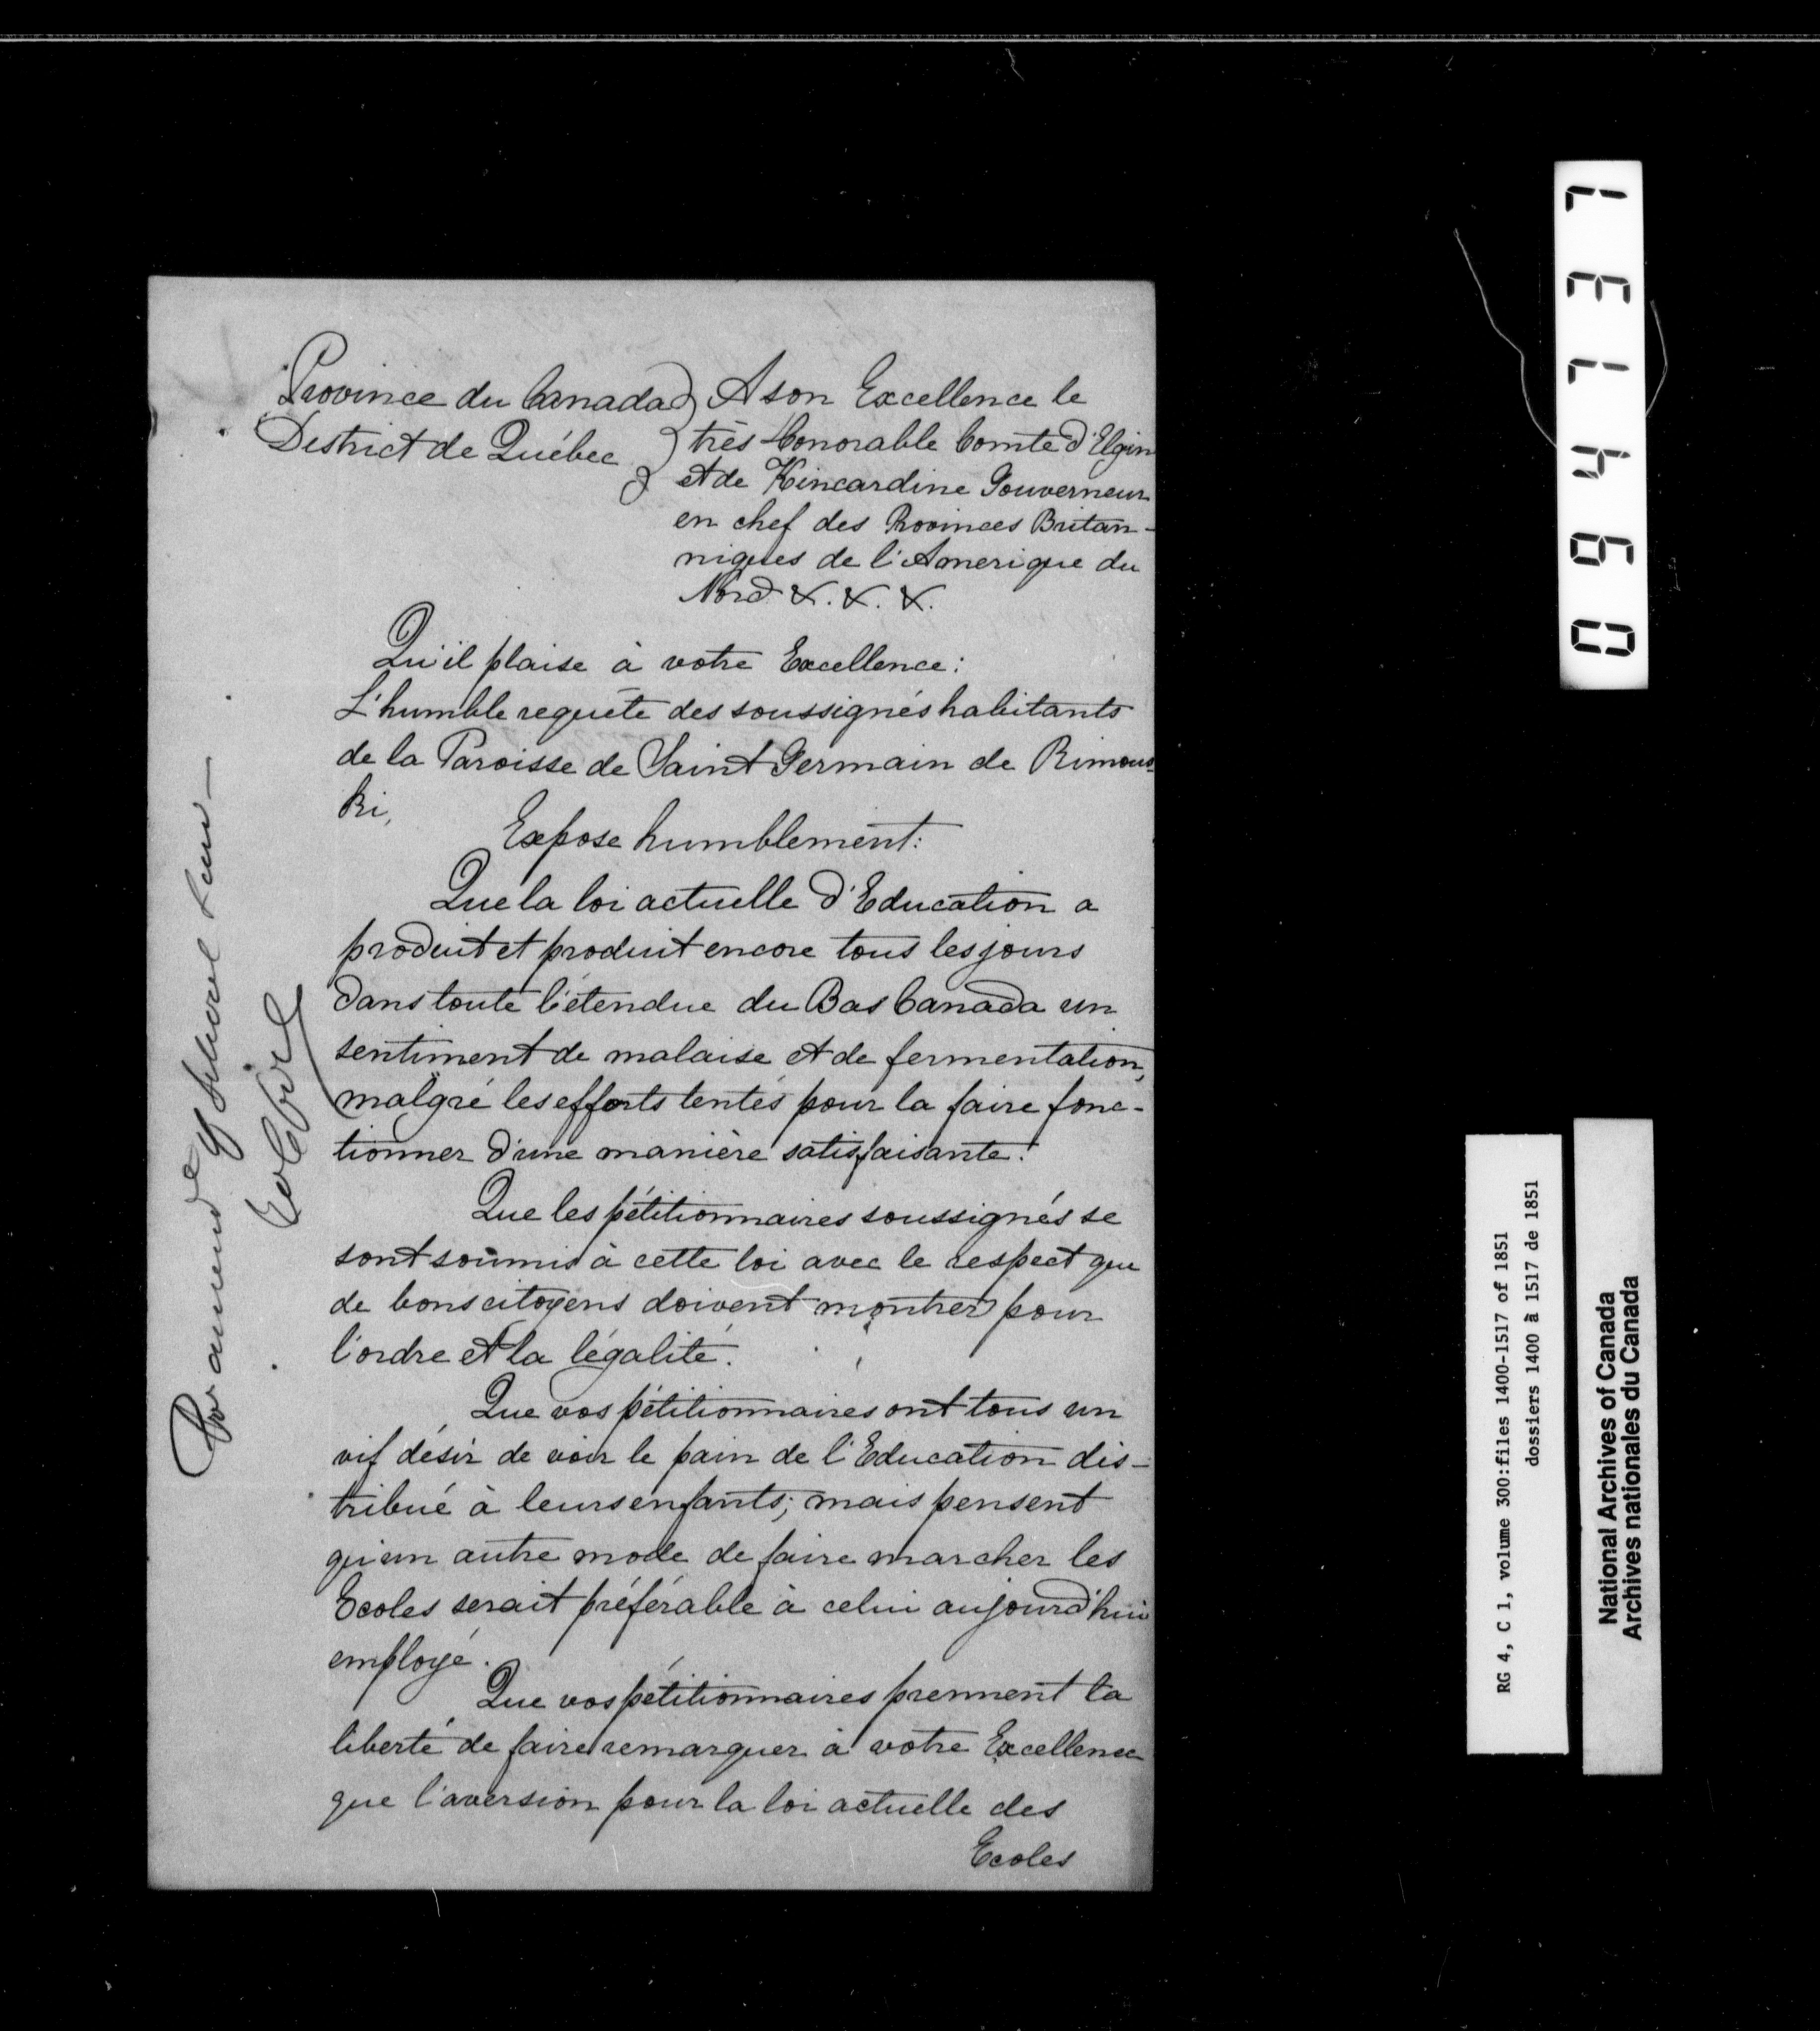 Province du Canada
District de Québec
A son Excellence le
très honorable Comte d'Elgin
et de Kincardine Gouverneur
en chef des Provinces Britan-
niques de l'Amerique du
Nord &. &. &.
Qu'il plaise à votre Excellence:
L'humble requête des soussignés habitants
de la Paroisse de Saint Germain de Rimous
ki,
Expose humblement:
Que la loi actuelle d'Education a
produit et produit encore tous les jours
dans toute l'étendue du Bas Canada un
sentiment de malaise et de fermentation,
malgré les efforts tentés pour la faire fonc-
tionner d'une manière satisfaisante.
Que les pétitionnaires soussignés se
sont soumis à cette loi avec le respect que
de bons citoyens doivent montrer pour
l'ordre et la légalité.
Que vos pétitionnaires ont tous un
vif désir de voir le pain de l'Education dis-
tribué à leurs enfants; mais pensent
qu'un autre mode de faire marcher les
Ecoles serait préférable à celui aujourd'hui
employé.
Que vos pétitionnaires prennent la
liberté de faire remarquer à votre Excellence
que l'aversion pour la loi actuelle des
Ecoles
For amend of School Law
094737
RG 4, C 1, volume 300:files 1400-1517 of 1851
dossiers 1400 à 1517 de 1851
National Archives of Canada
Archives nationales du Canada